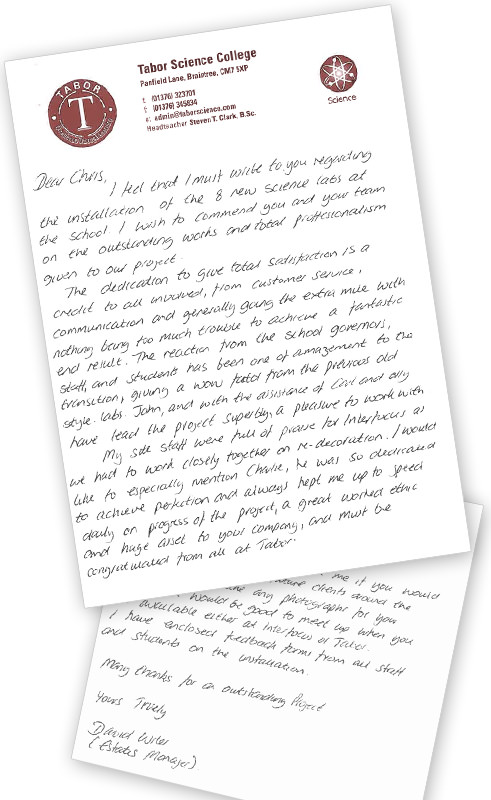 Tabor Science College
Panfield Lane, Braintree, CM7 5XP
t: (01376) 323701
f: (01376) 345834
e: admin@taborscience.com
Headteacher Steven T. Clark, B.Sc.
TABOR
T
Science
Dear Chris,
I feel that I must write to you regarding
the installation of the 8 new science labs at
the school. I wish to commend you and your team
on the outstanding works and total proffesionalism
given to our project.
The dedication to give total satisfaction is a
credit to all involved, from customer service,
communication and generally going the extra mile with
nothing being too much trouble to achieve a fantastic
end result. The reaction from the school governors,
staff, and students has been one of amazement to the
transition, giving a wow factor from the previous old
style labs. John, and with the assistance of Carl and olly
have lead the project superbly, a pleasure to work with
My site staff were full of praise for Interfocus as
we had to work closely together on re-decoration. I would
like to especially mention Charlie, he was so dedicated
to achieve perfection and always kept me up to speed
daily on progress of the project, a great worked ethic
and huge asset to your company, and must be
congratulated from all at Tabor.
me if you would
clients around the
any photographs for you
would be good to meet up when you
available either at Interfocus or Tabor.
I have enclosed feedback forms from all staff
and students on the installation.
Many thanks for an outstanding Project
Yours Truely
David
(Estates Manager)